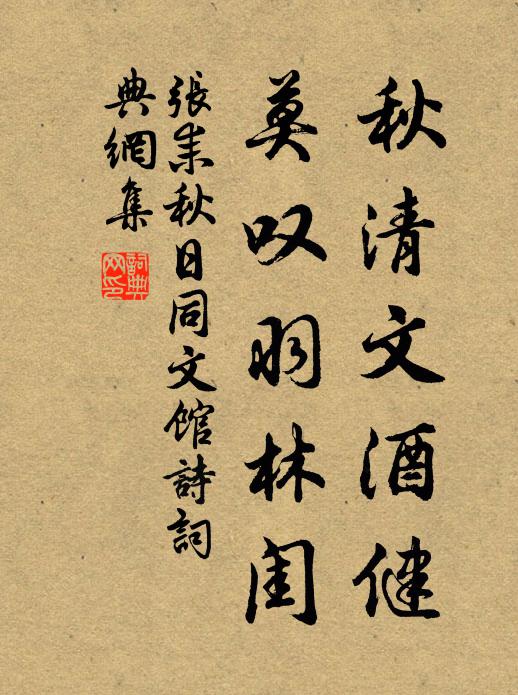 秋清文酒健
莫叹羽林闺
張耒秋日同文館詩詞
典網集
詞典网印